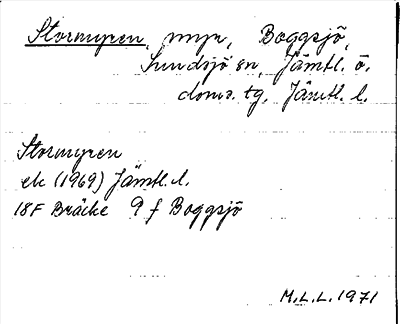 Stormyren, myr, Boggsjö,
Sundsjö sn, Jämtl. ö.
doms. tg, Jämtl. l.
Stormyren
ek (1969) Jämtl. l.
18F Bräcke 9 f Boggsjö
M.L.L. 1971